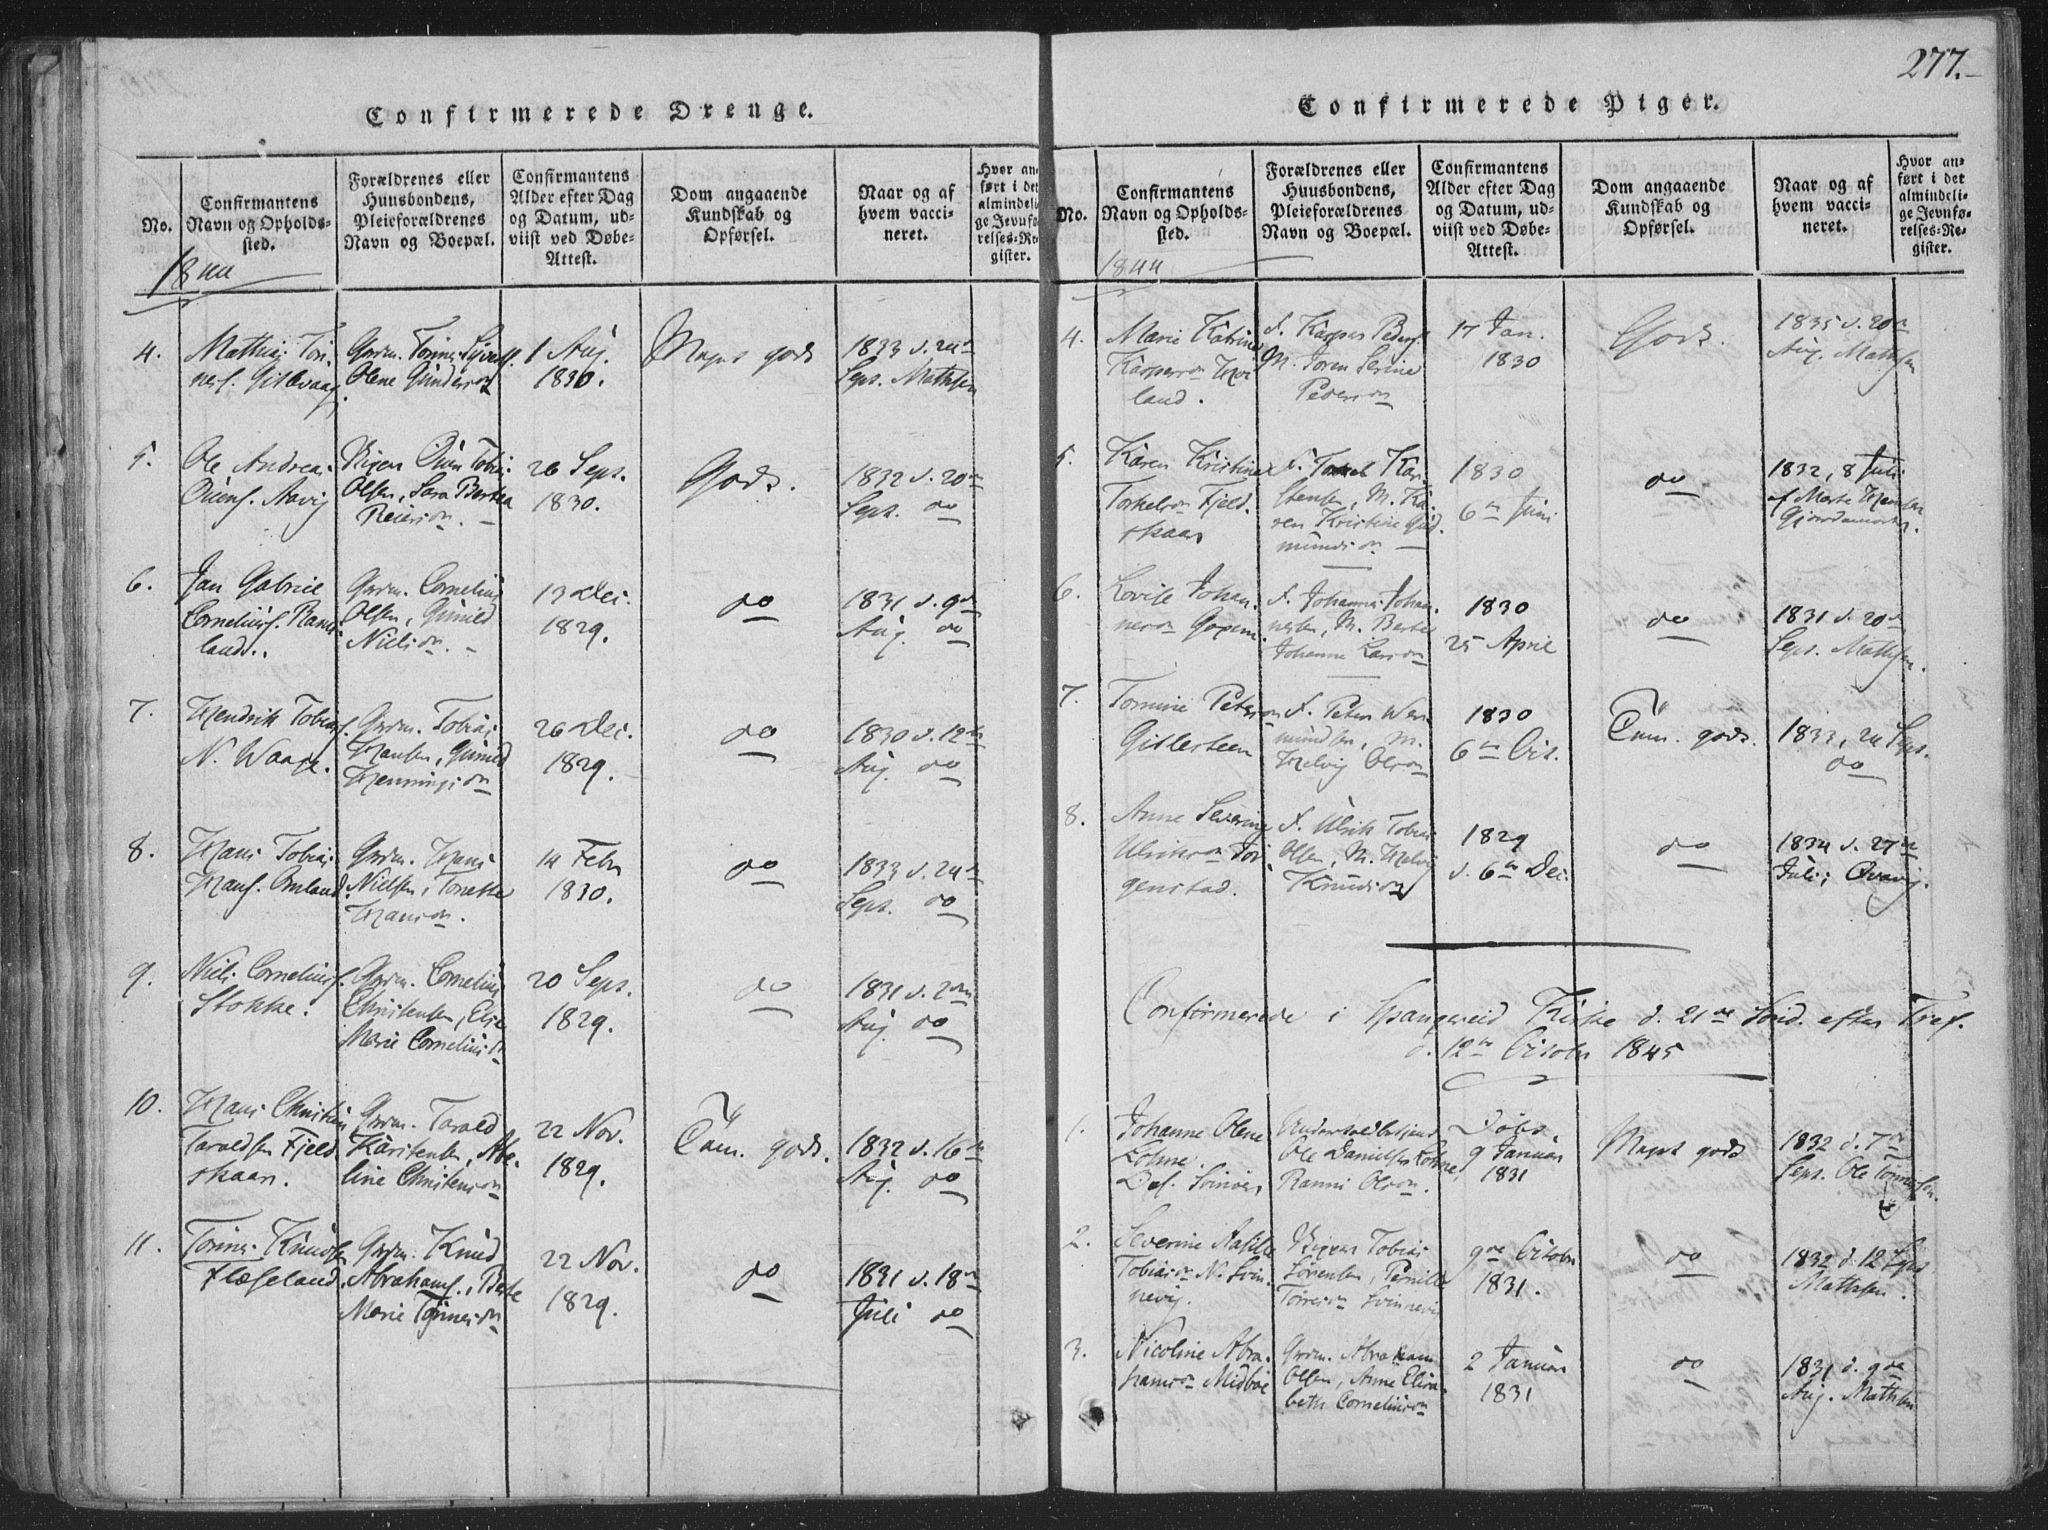 277.
Confirmerede Drenge.
No.
Confirmantens
Navn og Opholds-
sted.
Forældrenes eller
Huusbondens,
Pleieforældrenes
Navn og Boepæl.
Confirmantens
Alder efter Dag
og Datum, ud-
viist ved Døbe-
Attest.
Dom angaaende
Kundskab og
Opførsel.
Naar og af
hvem vacci-
neret.
Hvor an-
ført i det
almindeli-
ge Jevnfø-
relses-Re-
gister.
1844
4.
Mathias Tøn-
nes.
Grdm. Tønnes
Olene Gundersdn
1 Aug.
1830.
Meget godt
1833 d. 24de
Sept. Mathsen
5.
Ole Andreas
Aavig
Tobias
Olsen, Sara Bertha
Reiersdn.
26 Sept.
1830.
Godt.
1832 d. 20de
Sept. do
6.
Jan Gabriel
Corneliusf. Rams-
land.
Grdm. Cornelius
Olsen, Gunild
Nielsdn.
13 Dec.
1829.
do
1831 d. 9de
Aug. do
7.
Hendrik Tobiasf.
N. Waage.
Grdm. Tobias
Hansen, Gunild
Henningsdn
26 Dec.
1829.
do
1830 d. 12te
Aug. do
8.
Hans Tobias
Hansf. Omland
Grdm. Hans
Nielsen, Tonette
Hansdn.
14 Febr
1830.
do
1833 d. 24de
Sept. do
9.
Niels Corneliusf.
Stokke.
Grdm. Cornelius
Christensen, Else
Marie Corneliusdn
20 Sept.
1829.
do
1831 d. 2den
Aug. do
10.
Hans Christian
Taraldsen Fjeld-
skaar.
Grdm. Tarald
Karstensen, Abe-
line Christensdn
22 Nov.
1829.
Tem. godt.
1832 d. 16de
Aug. do
11.
Tønnes Knudsen
Flaseland.
Grdm. Knud
Abrahamf., Berte
Marie Tønnesdn
22 Nov.
1829.
do
1831 d. 18de
Juli do
Confirmerede Piger.
No.
Confirmantens
Navn og Opholds-
sted.
Forældrenes eller
Huusbondens,
Pleieforældrenes
Navn og Boepæl.
Confirmantens
Alder efter Dag
og Datum, ud-
viist ved Døbe-
Attest.
Dom angaaende
Kundskab og
Opførsel.
Naar og af
hvem vacci-
neret.
Hvor an-
ført i det
almindeli-
ge Jevnfø-
relses-Re-
gister.
1844
4.
Marie Katrine
Kaspersdn Hvi-
land.
F. Kasper Peders.
M. Joren Serine
Pedersdn
17 Jan.
1830
Godt.
1835 d. 20de
Aug. Mathsen
5.
Karen Kristine
Torkelsdn Fjeld-
skaar
F. Kar-
stensen, M. Ka-
ren Kristine Gud-
mundsdn
1830
6te Juni
do
1832, 8 Juli
af Marte Hansen
6.
Lovise Johan-
nesdn
F. Johannes Johan-
nesen, M. Berte
Johanne Larsdn
1830
25 April
do
1831 d. 20de
Sept. Mathsen.
7.
Tomine Petersdn
Gitlesteen
F. Peter Wer-
mundsen, M.
Helvig Olsdn
1830
6te Oct.
Tem. godt.
1833, 24 Sept.
do
8.
Anne Severine
Ulriksdn Jør-
genstad.
F. Ulrik Tobias
Olsen, M. Helvig
Knudsdn
1829
d. 6te Dec.
do
1834 d. 27de
Juli, Qvavig.
Confirmerede i Spangereid Kirke d. 21de Sønd. efter Tref.
d. 12te Octobr 1845
1.
Johanne Olene
Lohne
Ole Danielsen Lohne,
Ranni Olsdn.
Døbt
9 Januar
1831
Meget godt
1832 d. 7de
Sept. Ole Tønnessen.
2.
Severine Aasille
Tobiasdn N. Svin-
nevig.
Tobias
Sørensen, Pernille
Torresdn Svinnevig
9de Octobr
1831.
do
1832 d. 12 Sept
Mathsen.
3.
Nicoline Abra-
hamsdn Midbøe
Grdm. Abraham
Olsen, Anne Elisa-
beth Corneliusdn
2 Januar
1831
do
1831 d. 9de
Aug. Mathsen